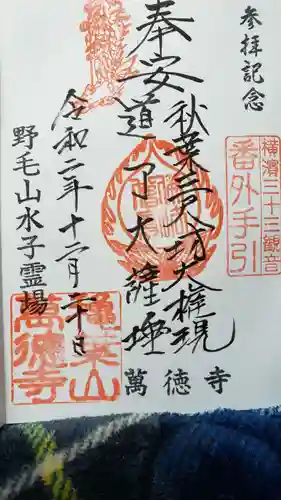 参拝記念
横濱三十三観音
番外手引
奉安
秋葉三尺坊大権現
道了大薩埵
令和二年十一月二十日
野毛山水子霊場
萬徳寺
萬徳寺